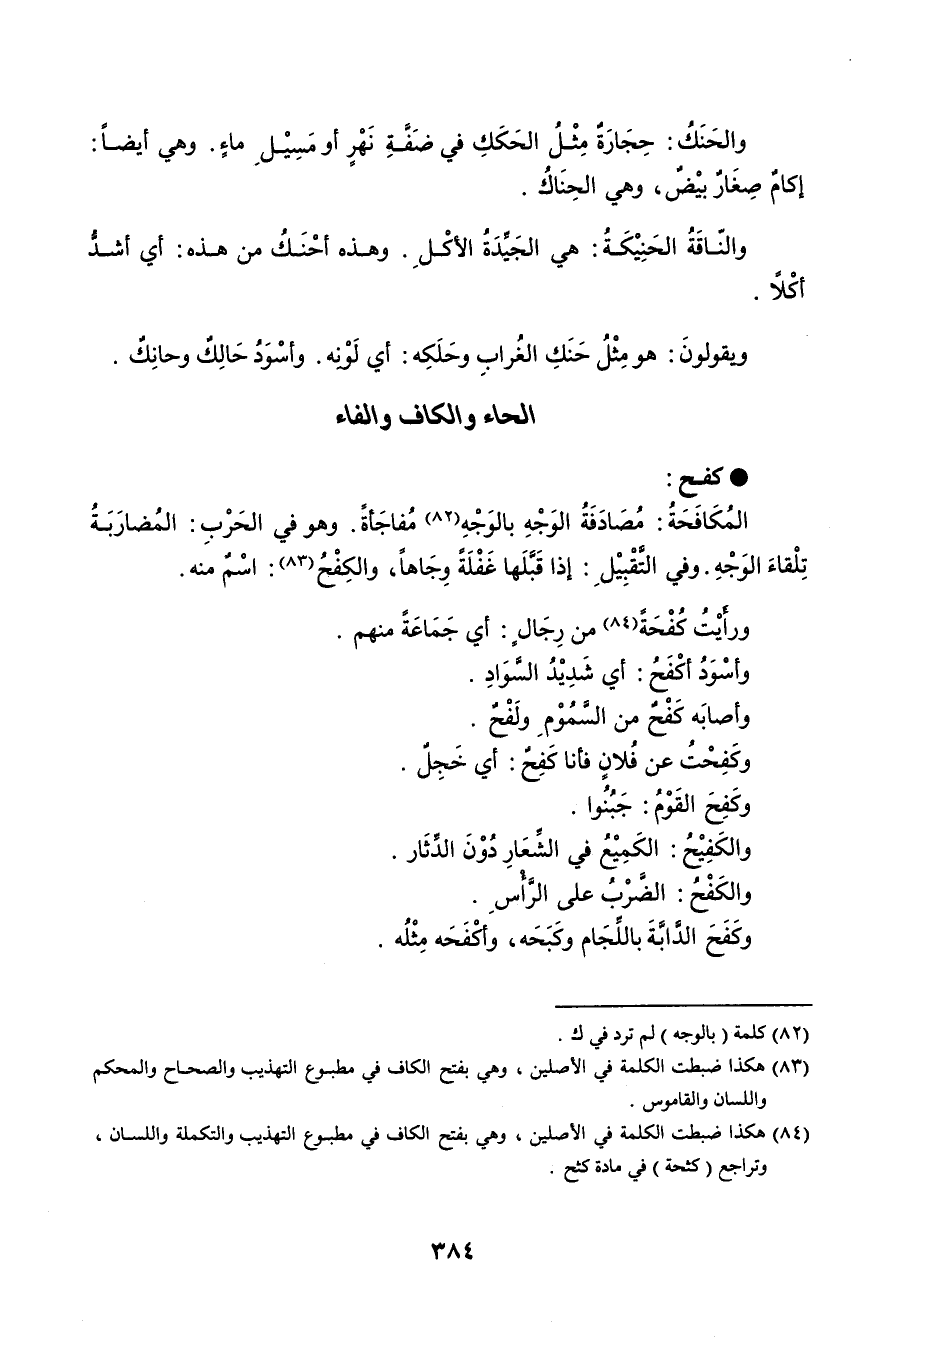 والحَنَكُ : حِجَارَةٌ مِثْلُ الحَكَكِ في ضَفَّةِ نَهْرٍ أو مَسِيْلِ ماءٍ . وهي أيضاً :
إكامٌ صِغَارٌ بِيْضٌ ، وهي الحِنَاكُ .
والنّاقَةُ الحَنِيْكَةُ : هي الجَيِّدَةُ الأكْلِ . وهذه أحْنَكُ من هذه : أي أشدُّ
أكْلًا .
ويقولونَ : هو مِثْلُ حَنَكِ الغُرابِ وحَلَكِه : أي لَوْنِه . وأسْوَدُ حَالِكٌ وحانِكٌ .
الحاء والكاف والفاء
● كفح :
المُكَافَحَةُ : مُصَادَفَةُ الوَجْهِ بالوَجْهِ(٨٢) مُفاجَأةً . وهو في الحَرْبِ : المُضارَبَةُ
تِلْقاءَ الوَجْهِ . وفي التَّقْبِيْلِ : إذا قَبَّلَها غَفْلَةً وِجَاهاً ، والكِفْحُ(٨٣) : اسْمٌ منه .
ورأَيْتُ كُفْحَةً(٨٤) من رِجَالٍ : أي جَمَاعَةً منهم .
وأسْوَدُ أكْفَحُ : أي شَدِيْدُ السَّوَادِ .
وأصابَه كَفْحٌ من السَّمُوْمِ ولَفْحٌ .
وكَفِحْتُ عن فُلانٍ فأنا كَفِحٌ : أي خَجِلٌ .
وكَفِحَ القَوْمُ : جَبُنُوا .
والكَفِيْحُ : الكَمِيْعُ في الشِّعَارِ دُوْنَ الدِّثَار .
والكَفْحُ : الضَّرْبُ على الرَّأْسِ .
وكَفَحَ الدَّابَّةَ باللِّجَام وكَبَحَه ، وأكْفَحَه مِثْلُه .
(٨٢) كلمة ( بالوجه ) لم ترد في ك .
(٨٣) هكذا ضبطت الكلمة في الأصلين ، وهي بفتح الكاف في مطبوع التهذيب والصحاح والمحكم
واللسان والقاموس .
(٨٤) هكذا ضبطت الكلمة في الأصلين ، وهي بفتح الكاف في مطبوع التهذيب والتكملة واللسان ،
وتراجع ( كثحة ) في مادة كثح .
٣٨٤